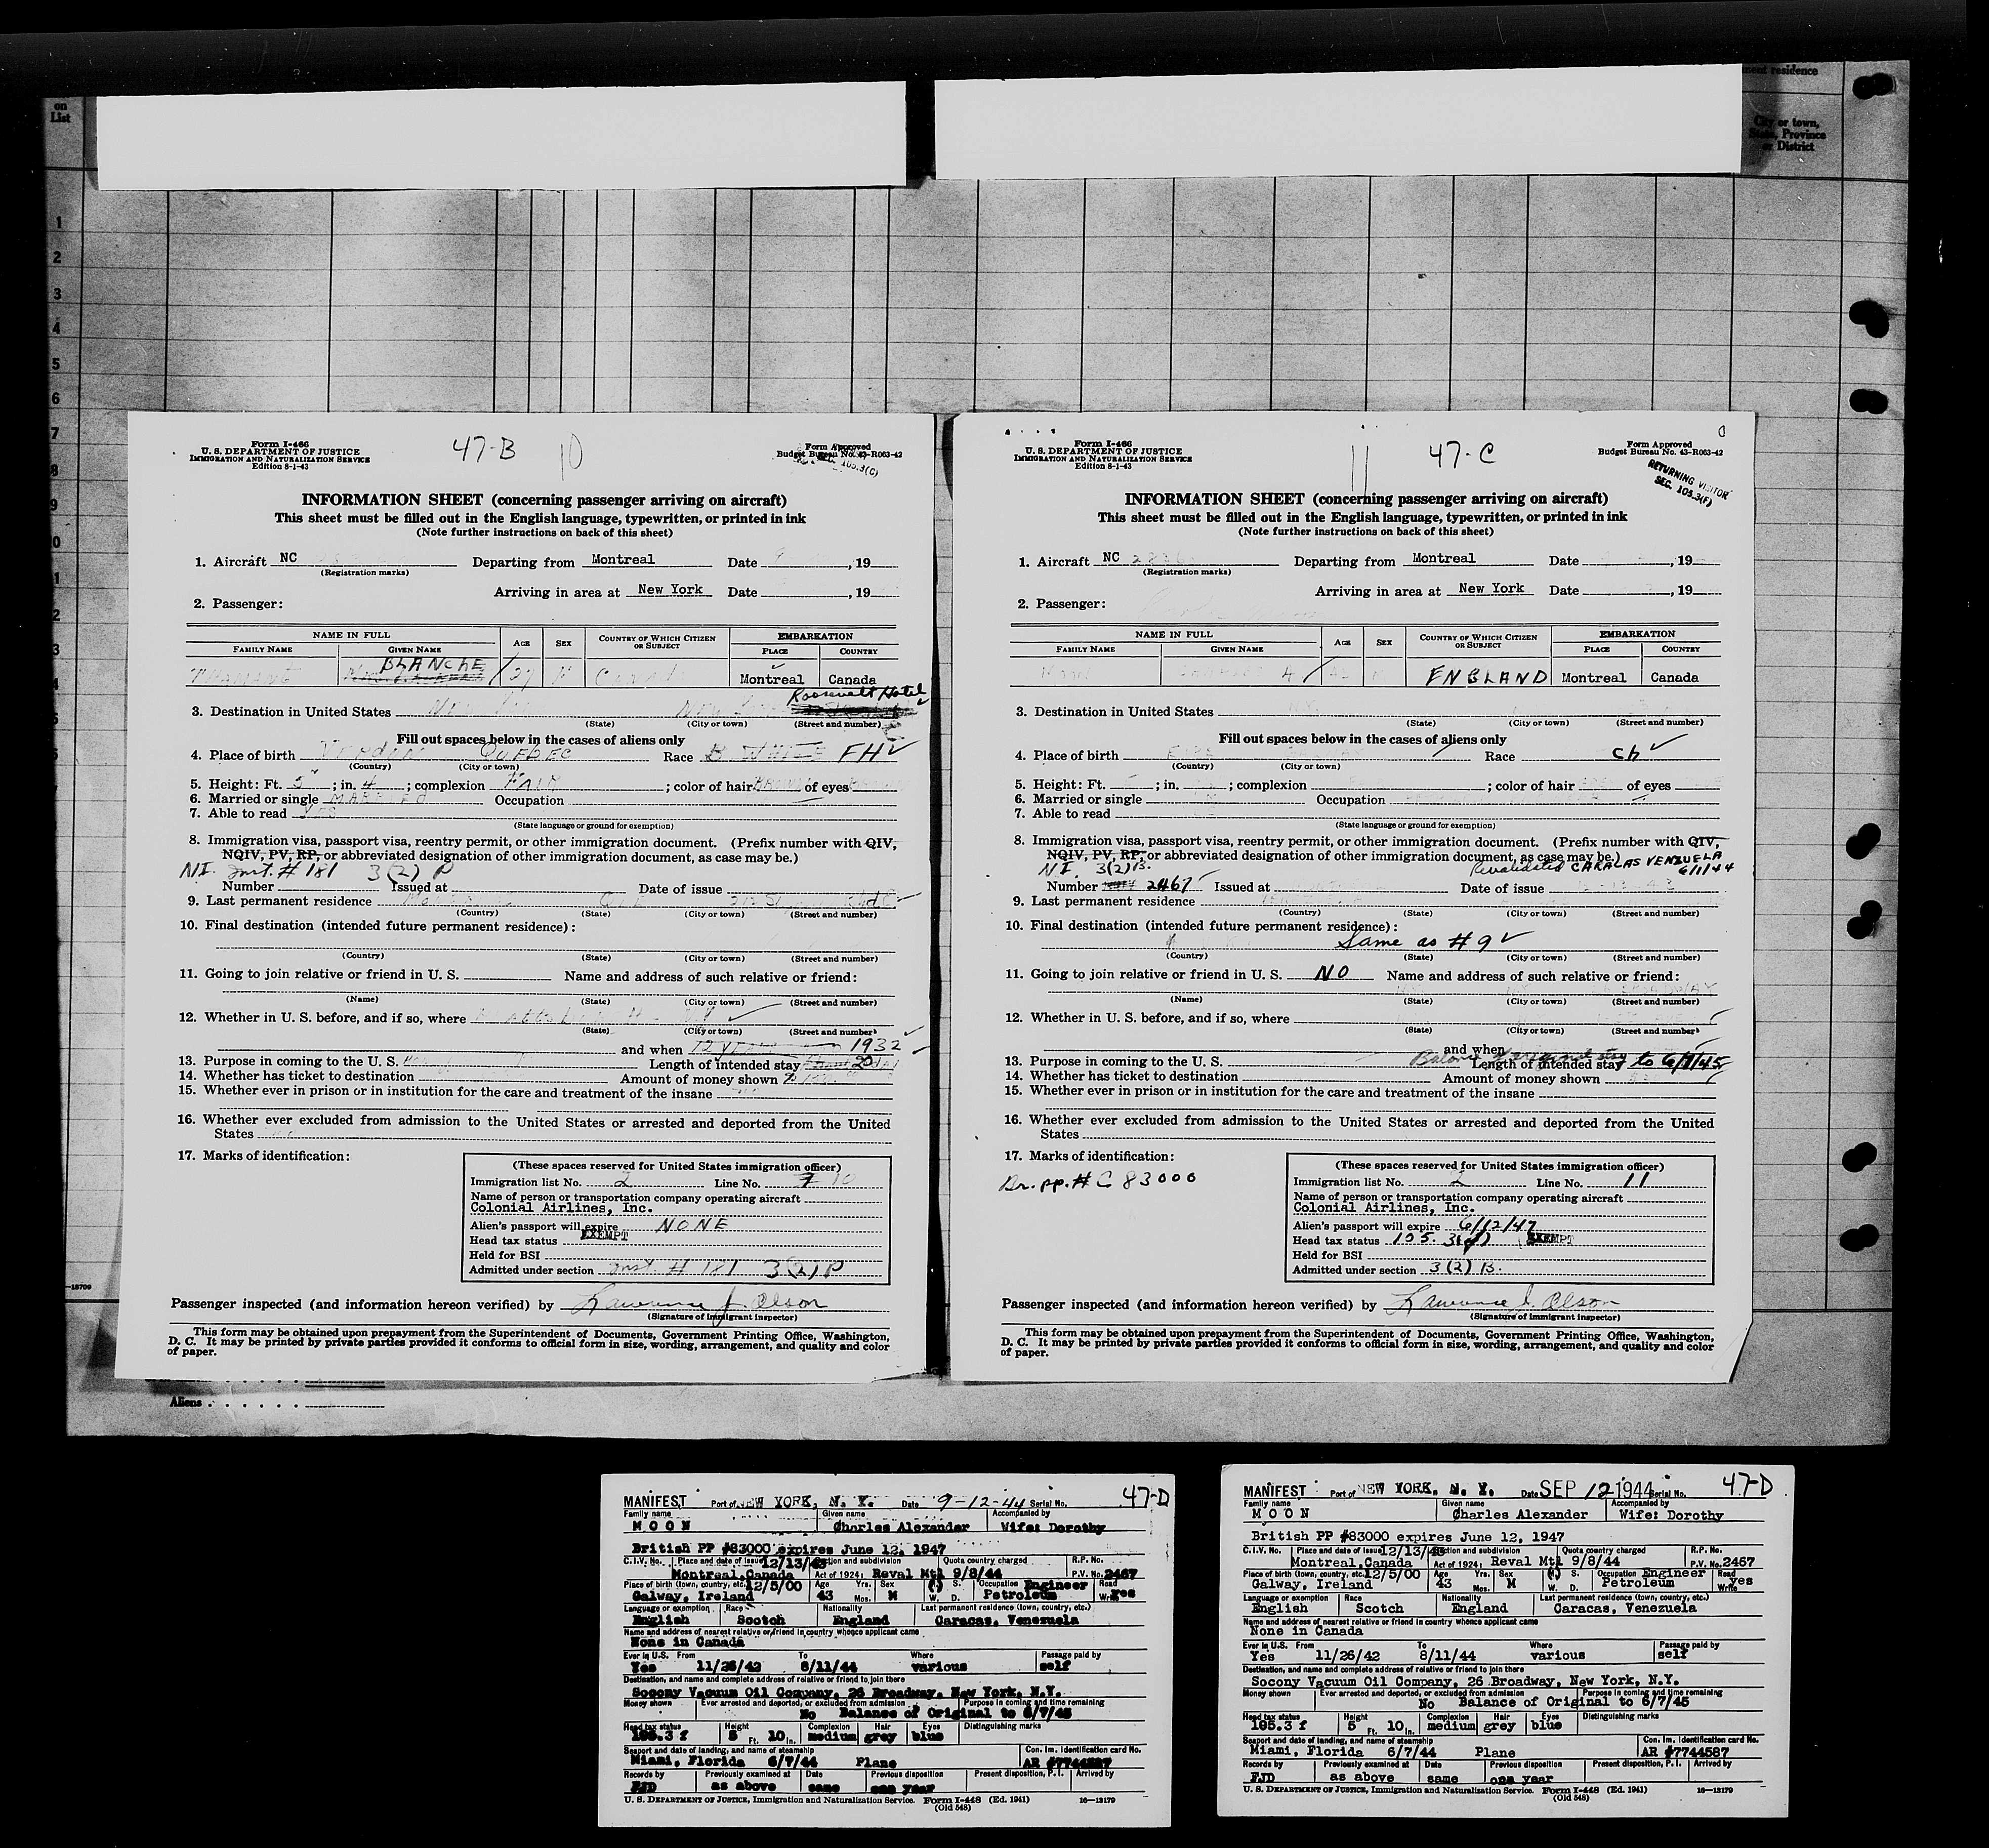 on
List
nent residence
City or town,
State, Province
or District
1
2
3
4
5
6
7
8
9
0
1
2
3
4
Form I-466
U. S. DEPARTMENT OF JUSTICE
IMMIGRATION AND NATURALIZATION SERVICE
Edition 8-1-43
47-B 10
Form Approved
Budget Bureau No. 43-R063-42
SEC. 105.3(C)
INFORMATION SHEET (concerning passenger arriving on aircraft)
This sheet must be filled out in the English language, typewritten, or printed in ink
(Note further instructions on back of this sheet)
1. Aircraft NC Departing from Montreal Date 9 , 19
(Registration marks)
Arriving in area at New York Date , 19
2. Passenger:
NAME IN FULL AGE SEX COUNTRY OF WHICH CITIZEN OR SUBJECT EMBARKATION
FAMILY NAME GIVEN NAME PLACE COUNTRY
BLANCHE 27 Montreal Canada
Roosevelt Hotel
3. Destination in United States
(State) (City or town) (Street and number)
Fill out spaces below in the cases of aliens only
4. Place of birth Verdun QUEBEC Race WHITE FH ✓
(Country) (City or town)
5. Height: Ft. 5 ; in. 4 ; complexion FAIR ; color of hair BROWN of eyes
6. Married or single MARRIED Occupation
7. Able to read YES
(State language or ground for exemption)
8. Immigration visa, passport visa, reentry permit, or other immigration document. (Prefix number with QIV,
NQIV, PV, RP, or abbreviated designation of other immigration document, as case may be.)
NI. Inst. # 181 3(2) P
Number Issued at Date of issue
9. Last permanent residence
(Country) (State) (City or town) (Street and number)
10. Final destination (intended future permanent residence):
(Country) (State) (City or town) (Street and number)
11. Going to join relative or friend in U. S. Name and address of such relative or friend:
(Name) (State) (City or town) (Street and number)
12. Whether in U. S. before, and if so, where ✓
(State) (City or town) (Street and number)
and when 12 years 1932 ✓
13. Purpose in coming to the U. S. Length of intended stay 20
14. Whether has ticket to destination Amount of money shown
15. Whether ever in prison or in institution for the care and treatment of the insane
16. Whether ever excluded from admission to the United States or arrested and deported from the United
States
17. Marks of identification:
(These spaces reserved for United States immigration officer)
Immigration list No. 2 Line No. 7 10
Name of person or transportation company operating aircraft
Colonial Airlines, Inc.
Alien's passport will expire NONE
Head tax status EXEMPT
Held for BSI
Admitted under section Inst. # 181 3(2) P
Passenger inspected (and information hereon verified) by Lawrence J. Olson
(Signature of immigrant inspector)
This form may be obtained upon prepayment from the Superintendent of Documents, Government Printing Office, Washington,
D. C. It may be printed by private parties provided it conforms to official form in size, wording, arrangement, and quality and color
of paper.
Form I-466
U. S. DEPARTMENT OF JUSTICE
IMMIGRATION AND NATURALIZATION SERVICE
Edition 8-1-43
11 47-C
Form Approved
Budget Bureau No. 43-R063-42
RETURNING VISITOR
SEC. 105.3(F)
INFORMATION SHEET (concerning passenger arriving on aircraft)
This sheet must be filled out in the English language, typewritten, or printed in ink
(Note further instructions on back of this sheet)
1. Aircraft NC Departing from Montreal Date , 19
(Registration marks)
Arriving in area at New York Date , 19
2. Passenger:
NAME IN FULL AGE SEX COUNTRY OF WHICH CITIZEN OR SUBJECT EMBARKATION
FAMILY NAME GIVEN NAME PLACE COUNTRY
ENGLAND Montreal Canada
3. Destination in United States
(State) (City or town) (Street and number)
Fill out spaces below in the cases of aliens only
4. Place of birth Race Ch ✓
(Country) (City or town)
5. Height: Ft. ; in. ; complexion ; color of hair of eyes
6. Married or single Occupation
7. Able to read
(State language or ground for exemption)
8. Immigration visa, passport visa, reentry permit, or other immigration document. (Prefix number with QIV,
NQIV, PV, RP, or abbreviated designation of other immigration document, as case may be.)
NI. 3(2)B. Revalidated CARACAS VENZUELA
6/1/44
Number 2467 Issued at Date of issue
9. Last permanent residence
(Country) (State) (City or town) (Street and number)
10. Final destination (intended future permanent residence):
Same as # 9 ✓
(Country) (State) (City or town) (Street and number)
11. Going to join relative or friend in U. S. NO Name and address of such relative or friend:
BROADWAY
(Name) (State) (City or town) (Street and number)
12. Whether in U. S. before, and if so, where
(State) (City or town) (Street and number)
and when
13. Purpose in coming to the U. S. Balance original stay Length of intended stay to 6/7/45
14. Whether has ticket to destination Amount of money shown
15. Whether ever in prison or in institution for the care and treatment of the insane
16. Whether ever excluded from admission to the United States or arrested and deported from the United
States
17. Marks of identification:
Br. pp. # C 83000
(These spaces reserved for United States immigration officer)
Immigration list No. 2 Line No. 11
Name of person or transportation company operating aircraft
Colonial Airlines, Inc.
Alien's passport will expire 6/12/47
Head tax status 105.3(f) EXEMPT
Held for BSI
Admitted under section 3(2) B.
Passenger inspected (and information hereon verified) by Lawrence J. Olson
(Signature of immigrant inspector)
This form may be obtained upon prepayment from the Superintendent of Documents, Government Printing Office, Washington,
D. C. It may be printed by private parties provided it conforms to official form in size, wording, arrangement, and quality and color
of paper.
18706
Aliens
MANIFEST Port of NEW YORK, N. Y. Date 9-12-44 Serial No. 47-D
Family name Given name Accompanied by
MOON Charles Alexander Wife: Dorothy
British PP #83000 expires June 12, 1947
C.I.V. No. Place and date of issue 12/13/43 Section and subdivision Quota country charged R.P. No.
Montreal,Canada Act of 1924: Reval Mtl 9/8/44 P.V. No. 2467
Place of birth (town, country, etc.) 12/5/00 Age Yrs. Sex M. S. Occupation Engineer Read
Galway, Ireland 43 Mos. M W. D. Petroleum Write yes
Language or exemption Race Nationality Last permanent residence (town, country, etc.)
English Scotch England Caracas, Venezuela
Name and address of nearest relative or friend in country whence applicant came
None in Canada
Ever in U.S. From To Where Passage paid by
Yes 11/26/42 8/11/44 various self
Destination, and name and complete address of relative or friend to join there
Socony Vacuum Oil Company, 26 Broadway, New York, N.Y.
Money shown Ever arrested and deported, or excluded from admission Purpose in coming and time remaining
No Balance of Original to 6/7/45
Head tax status Height Complexion Hair Eyes Distinguishing marks
105.3 f 5 Ft. 10 in. medium grey blue
Seaport and date of landing, and name of steamship Con. Im. Identification card No.
Miami, Florida 6/7/44 Plane AR #7744587
Records by Previously examined at Date Previous disposition Present disposition, P. I. Arrived by
FJD as above same one year
U. S. DEPARTMENT OF JUSTICE, Immigration and Naturalization Service. Form I-448 (Ed. 1941) 16—13179
(Old 548)
MANIFEST Port of NEW YORK, N. Y. Date SEP 12 1944 Serial No. 47-D
Family name Given name Accompanied by
MOON Charles Alexander Wife: Dorothy
British PP #83000 expires June 12, 1947
C.I.V. No. Place and date of issue 12/13/43 Section and subdivision Quota country charged R.P. No.
Montreal,Canada Act of 1924: Reval Mtl 9/8/44 P.V. No. 2467
Place of birth (town, country, etc.) 12/5/00 Age Yrs. Sex M. S. Occupation Engineer Read
Galway, Ireland 43 Mos. M W. D. Petroleum Write yes
Language or exemption Race Nationality Last permanent residence (town, country, etc.)
English Scotch England Caracas, Venezuela
Name and address of nearest relative or friend in country whence applicant came
None in Canada
Ever in U.S. From To Where Passage paid by
Yes 11/26/42 8/11/44 various self
Destination, and name and complete address of relative or friend to join there
Socony Vacuum Oil Company, 26 Broadway, New York, N.Y.
Money shown Ever arrested and deported, or excluded from admission Purpose in coming and time remaining
No Balance of Original to 6/7/45
Head tax status Height Complexion Hair Eyes Distinguishing marks
105.3 f 5 Ft. 10 in. medium grey blue
Seaport and date of landing, and name of steamship Con. Im. Identification card No.
Miami, Florida 6/7/44 Plane AR #7744587
Records by Previously examined at Date Previous disposition Present disposition, P. I. Arrived by
FJD as above same one year
U. S. DEPARTMENT OF JUSTICE, Immigration and Naturalization Service. Form I-448 (Ed. 1941) 16—13179
(Old 548)